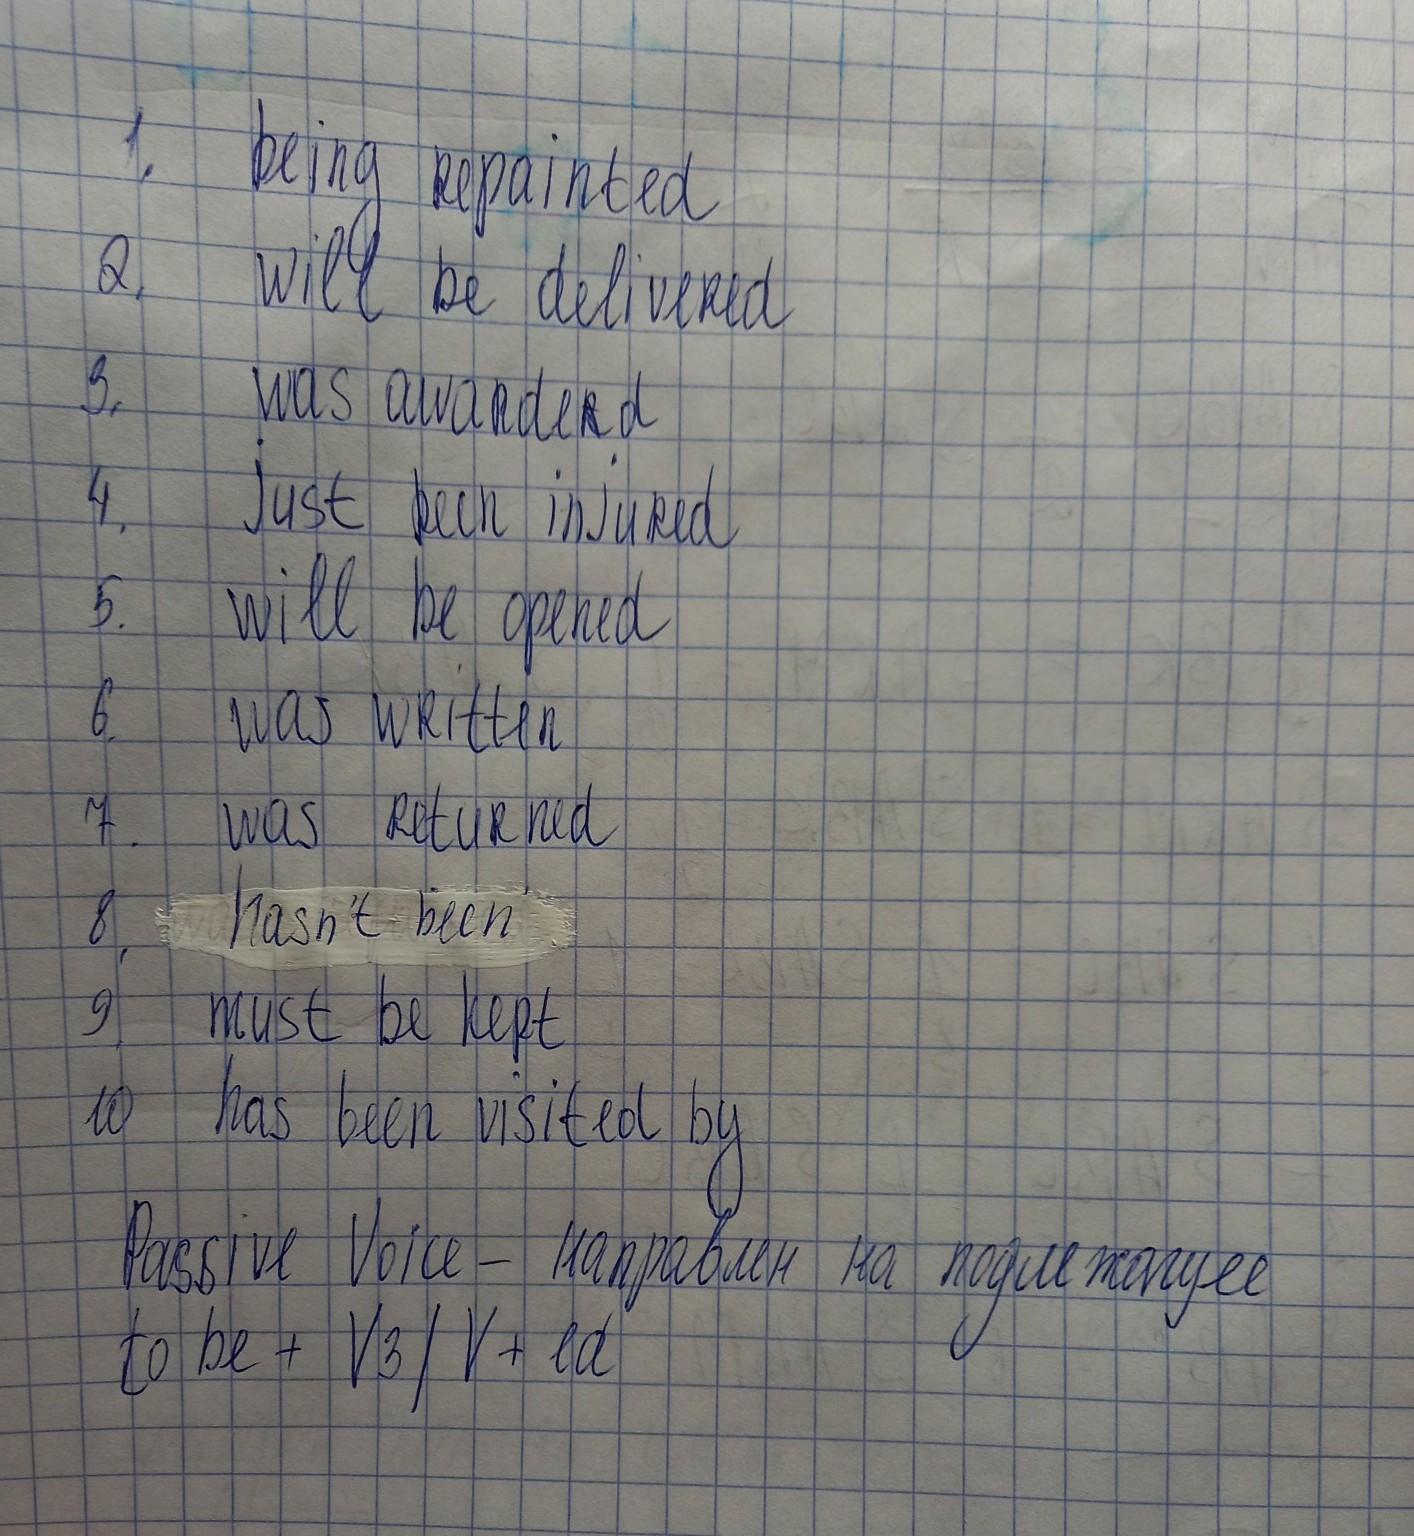 1. being repainted
2. will be delivered
3. was awarderd
4. just been injured
5. will be opened
6. was written
7. was returned
8. hasn't been
9. must be kept
10 has been visited by
Passive Voice – направлен на подлежащее
to be + V3/V + ed